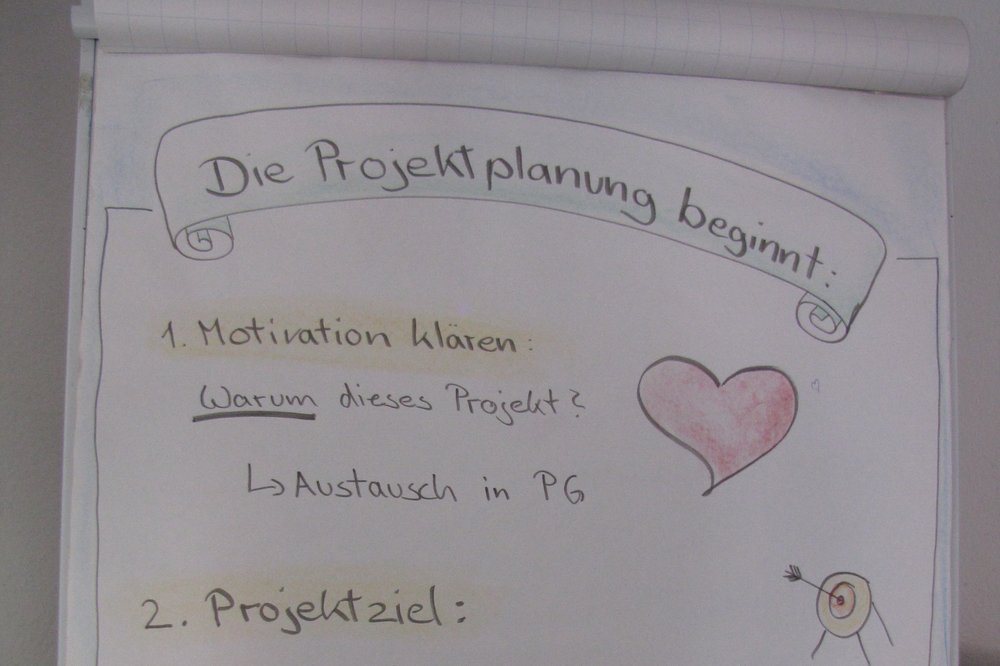 Die Projektplanung beginnt:
1. Motivation klären:
Warum dieses Projekt?
↳ Austausch in PG
2. Projektziel: